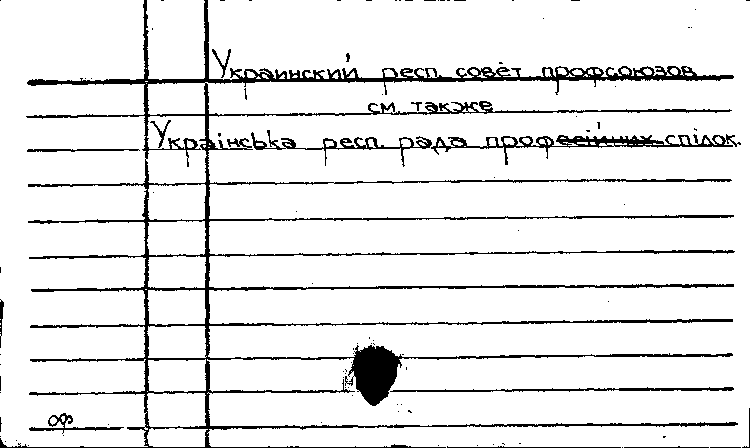 Украинский респ. совет профсоюзов
см. также
Українська респ. рада професійних спілок.
оф